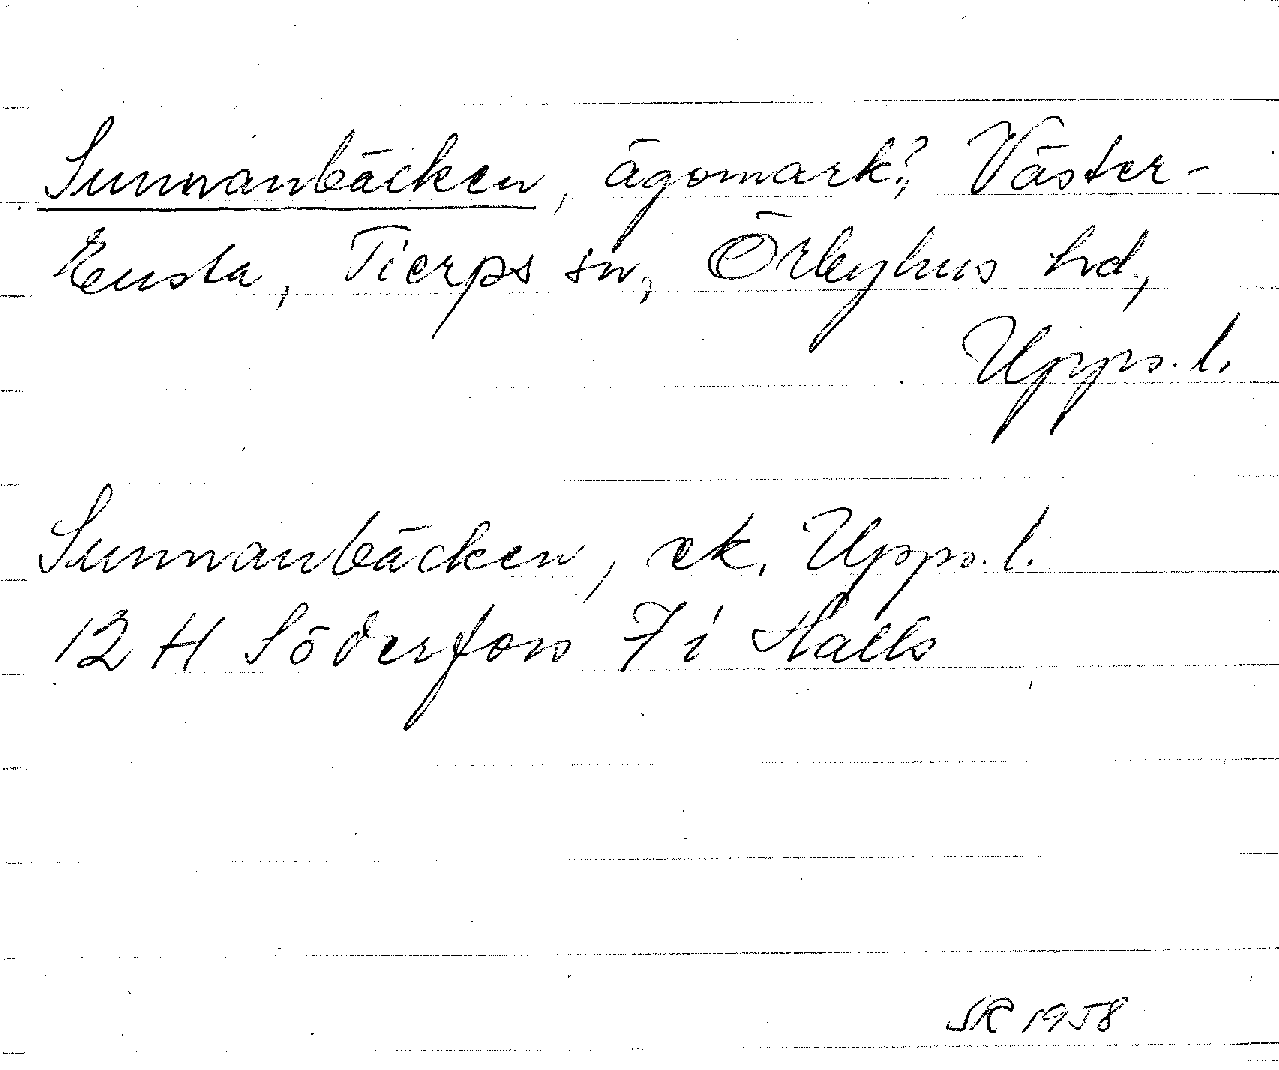 Sunnanbäcken, ägomark?, Väster-
Ensta, Tierps sn, Örbyhus hd,
Upps. l.
Sunnanbäcken, ek. Upps. l.
12 H Söderfors 7 i Halls
SR 1958